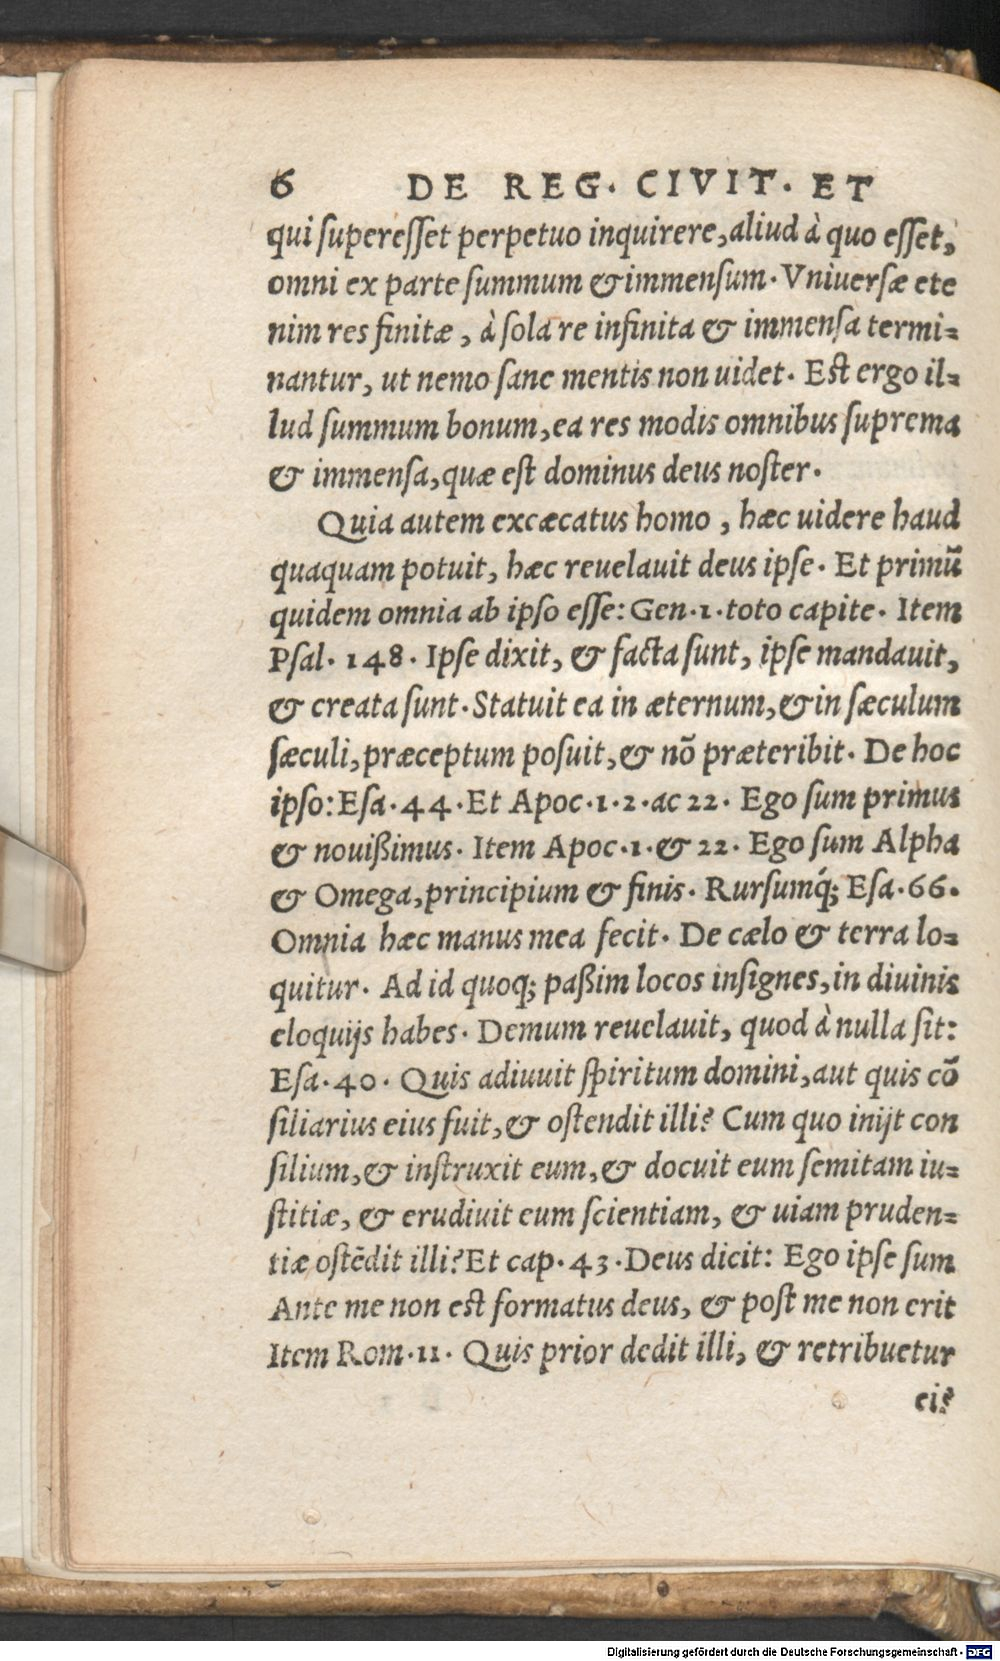 6 DE REG. CIVIT. ET
qui superesset perpetuo inquirere, aliud à quo esset,
omni ex parte summum & immensum. Vniuersæ ete
nim res finitæ, à sola re infinita & immensa termi=
nantur, ut nemo sanc mentis non uidet. Est ergo il=
lud summum bonum, ea res modis omnibus suprema
& immensa, quæ est dominus deus noster.
Quia autem excæcatus homo, hæc uidere haud
quaquam potuit, hæc reuelauit deus ipse. Et primũ
quidem omnia ab ipso esse: Gen. 1. toto capite. Item
Psal. 148. Ipse dixit, & facta sunt, ipse mandauit,
& creata sunt. Statuit ea in æternum, & in sæculum
sæculi, præceptum posuit, & nõ præteribit. De hoc
ipso: Esa. 44. Et Apoc. 1. 2. ac 22. Ego sum primus
& nouißimus. Item Apoc. 1. & 22. Ego sum Alpha
& Omega, principium & finis. Rursumq́; Esa. 66.
Omnia hæc manus mea fecit. De cælo & terra lo=
quitur. Ad id quoq; paßim locos insignes, in diuinis
eloquijs habes. Demum reuelauit, quod à nulla sit:
Esa. 40. Quis adiuuit spiritum domini, aut quis cõ
siliarius eius fuit, & ostendit illi? Cum quo inijt con
silium, & instruxit eum, & docuit eum semitam iu=
stitiæ, & erudiuit eum scientiam, & uiam pruden=
tiæ ostẽdit illi? Et cap. 43. Deus dicit: Ego ipse sum
Ante me non est formatus deus, & post me non erit
Item Rom. 11. Quis prior dedit illi, & retribuetur
ei?
Digitalisierung gefördert durch die Deutsche Forschungsgemeinschaft - DFG